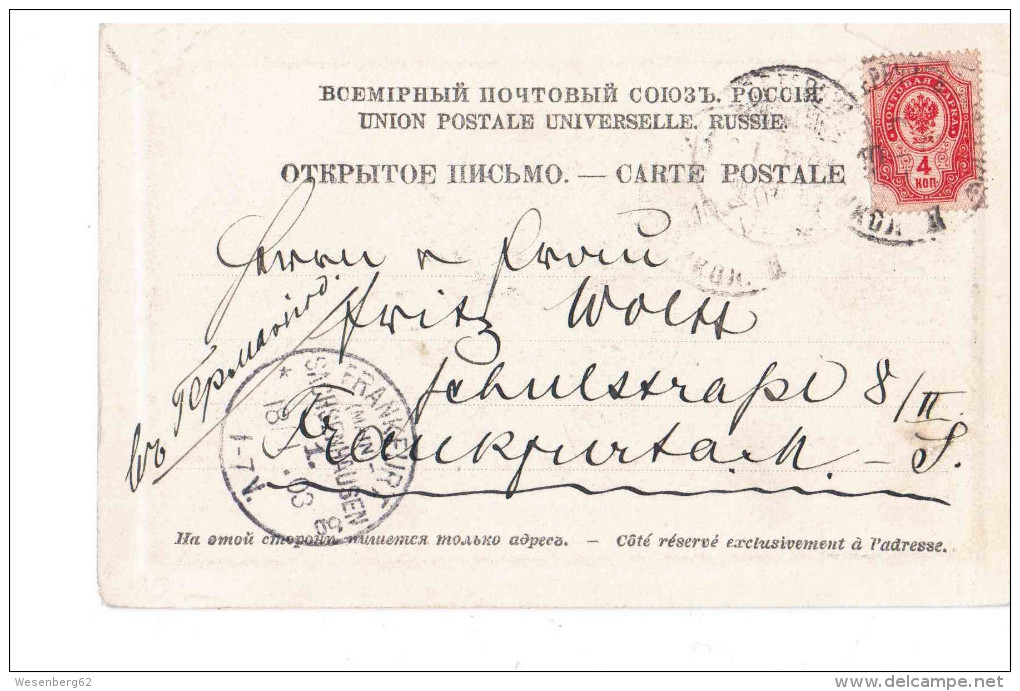 ВСЕМІРНЫЙ ПОЧТОВЫЙ СОЮЗЪ. РОССІЯ
UNION POSTALE UNIVERSELLE. RUSSIE
ПОЧТОВАЯ МАРКА
4
КОП
ОТКРЫТОЕ ПИСЬМО. — CARTE POSTALE
Herrn u Frau
Fritz Wolff
Schulstraße 8/II
Frankfurt a. M. – S.
въ Германію
FRANKFURT
(MAIN)
SACHSENHAUSEN
18
1.
03
1-7V.
8
На этой сторонѣ пишется только адресъ. — Côté réservé exclusivement à l'adresse.
Wesenberg62
delcampe.net